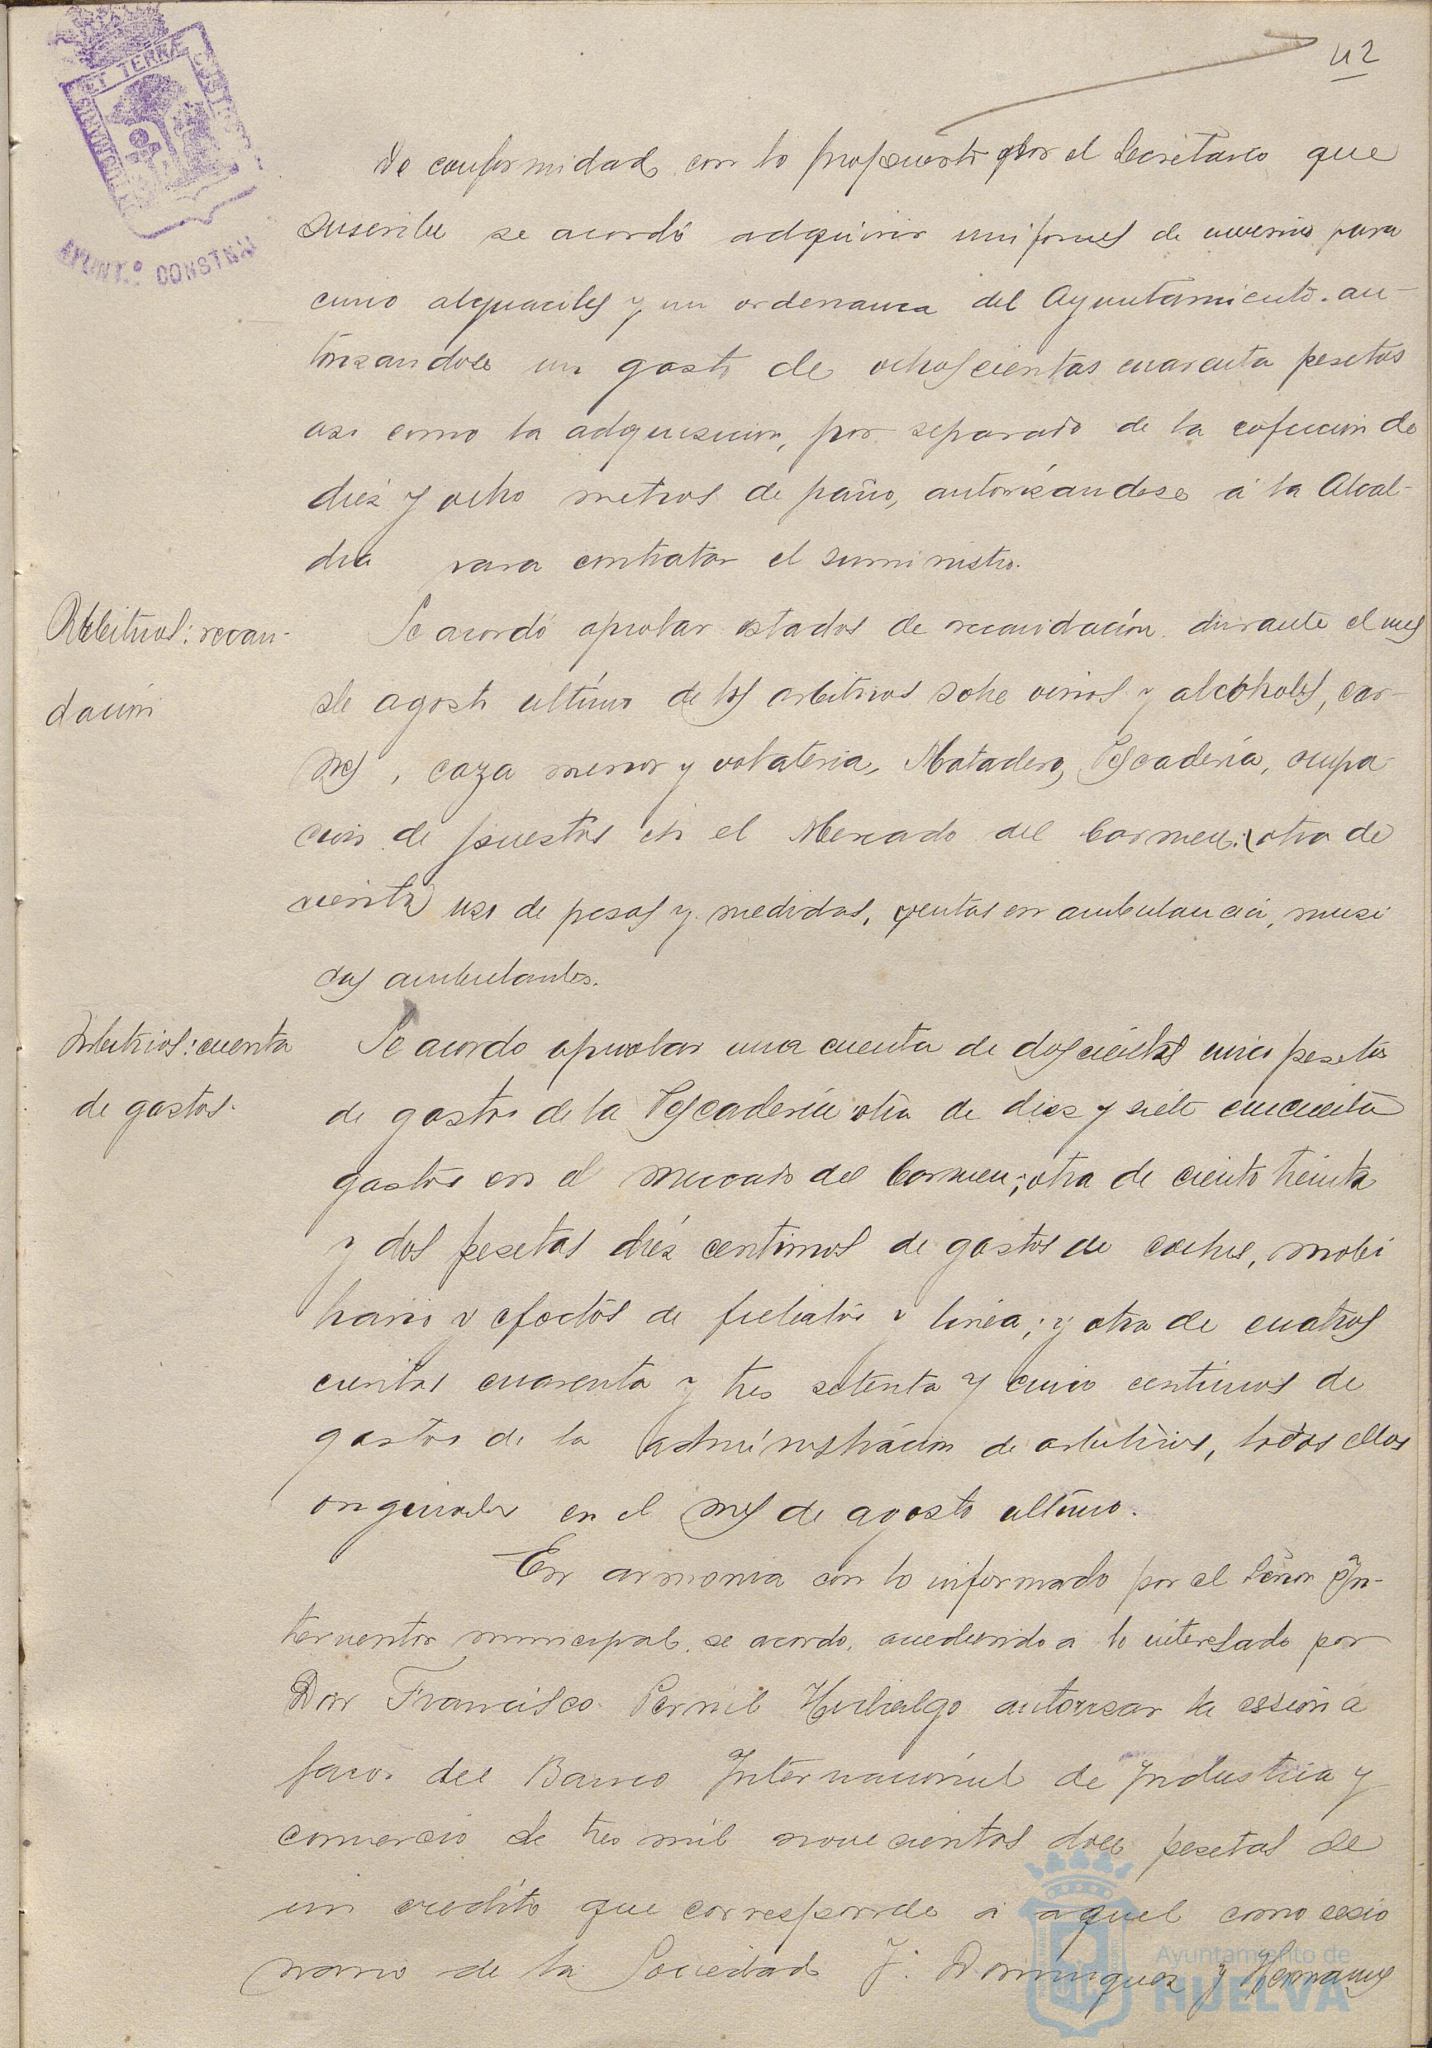 42
De conformidad con lo propuesto por el Secretario que
suscribe se acordó adquirir uniformes de invierno para
cinco alguaciles y un ordenanza del Ayuntamiento. au-
torizandose un gasto de ochoscientas cuarenta pesetas
asi como la adquisicion, por separado de la cofeccion de
diez y ocho metros de paño, autorizandose á la Alcal-
dia para contratar el suministro.
Arbitrios: recau-
dación
Se acordó aprobar estados de recaudación durante el mes
de agosto último de los arbitrios sobre vinos y alcoholes, car-
nes, caza menor y volateria, Matadero, Pescadería, ocupa
cion de puestos en el Mercado del Carmen; otra de
cienta uso de pesas y medidas, ventas en ambulancia, musi
cos ambulantes.
Arbitrios: cuenta
de gastos.
Se acordo aprobar una cuenta de doscientas cinco pesetas
de gastos de la Pescadería otra de diez y siete cincuenta
gastos en el mercado del Carmen; otra de ciento treinta
y dos pesetas diéz centimos de gastos de coches, mobi
liario y efectos de fielatos y linea; y otra de cuatros
cientas cuarenta y tres setenta y cinco centimos de
gastos de la administración de arbitrios, todos ellos
originales en el mes de agosto ultimo.
En armonia con lo informado por el Señor In-
terventor municipal se acordo, accediendo a lo interesado por
Don Francisco Pernil Hidalgo autorizar la cesión a
favor del Banco Internacional de Industria y
comercio de tres mil novecientas doce pesetas de
un credito que corresponde a aquel como cesio
nario de la Sociedad J. Dominguez y Hermanos
ET TERRAE CUSTODIA
AYUNT.º CONSTNAL
Ayuntamiento de
HUELVA